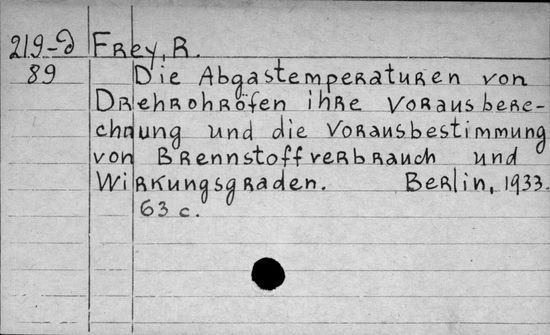 219-д Frey, R.
89 Die Abgastemperaturen von
Drehrohröfen ihre Vorausbere-
chnung und die Vorausbestimmung
von Brennstoffverbrauch und
Wirkungsgraden. Berlin, 1933.
63 c.